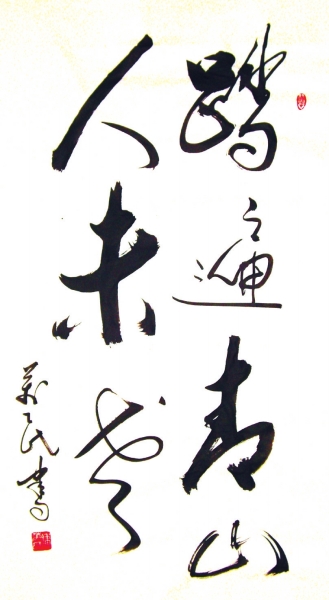 踏遍青山
人未老
萬民書